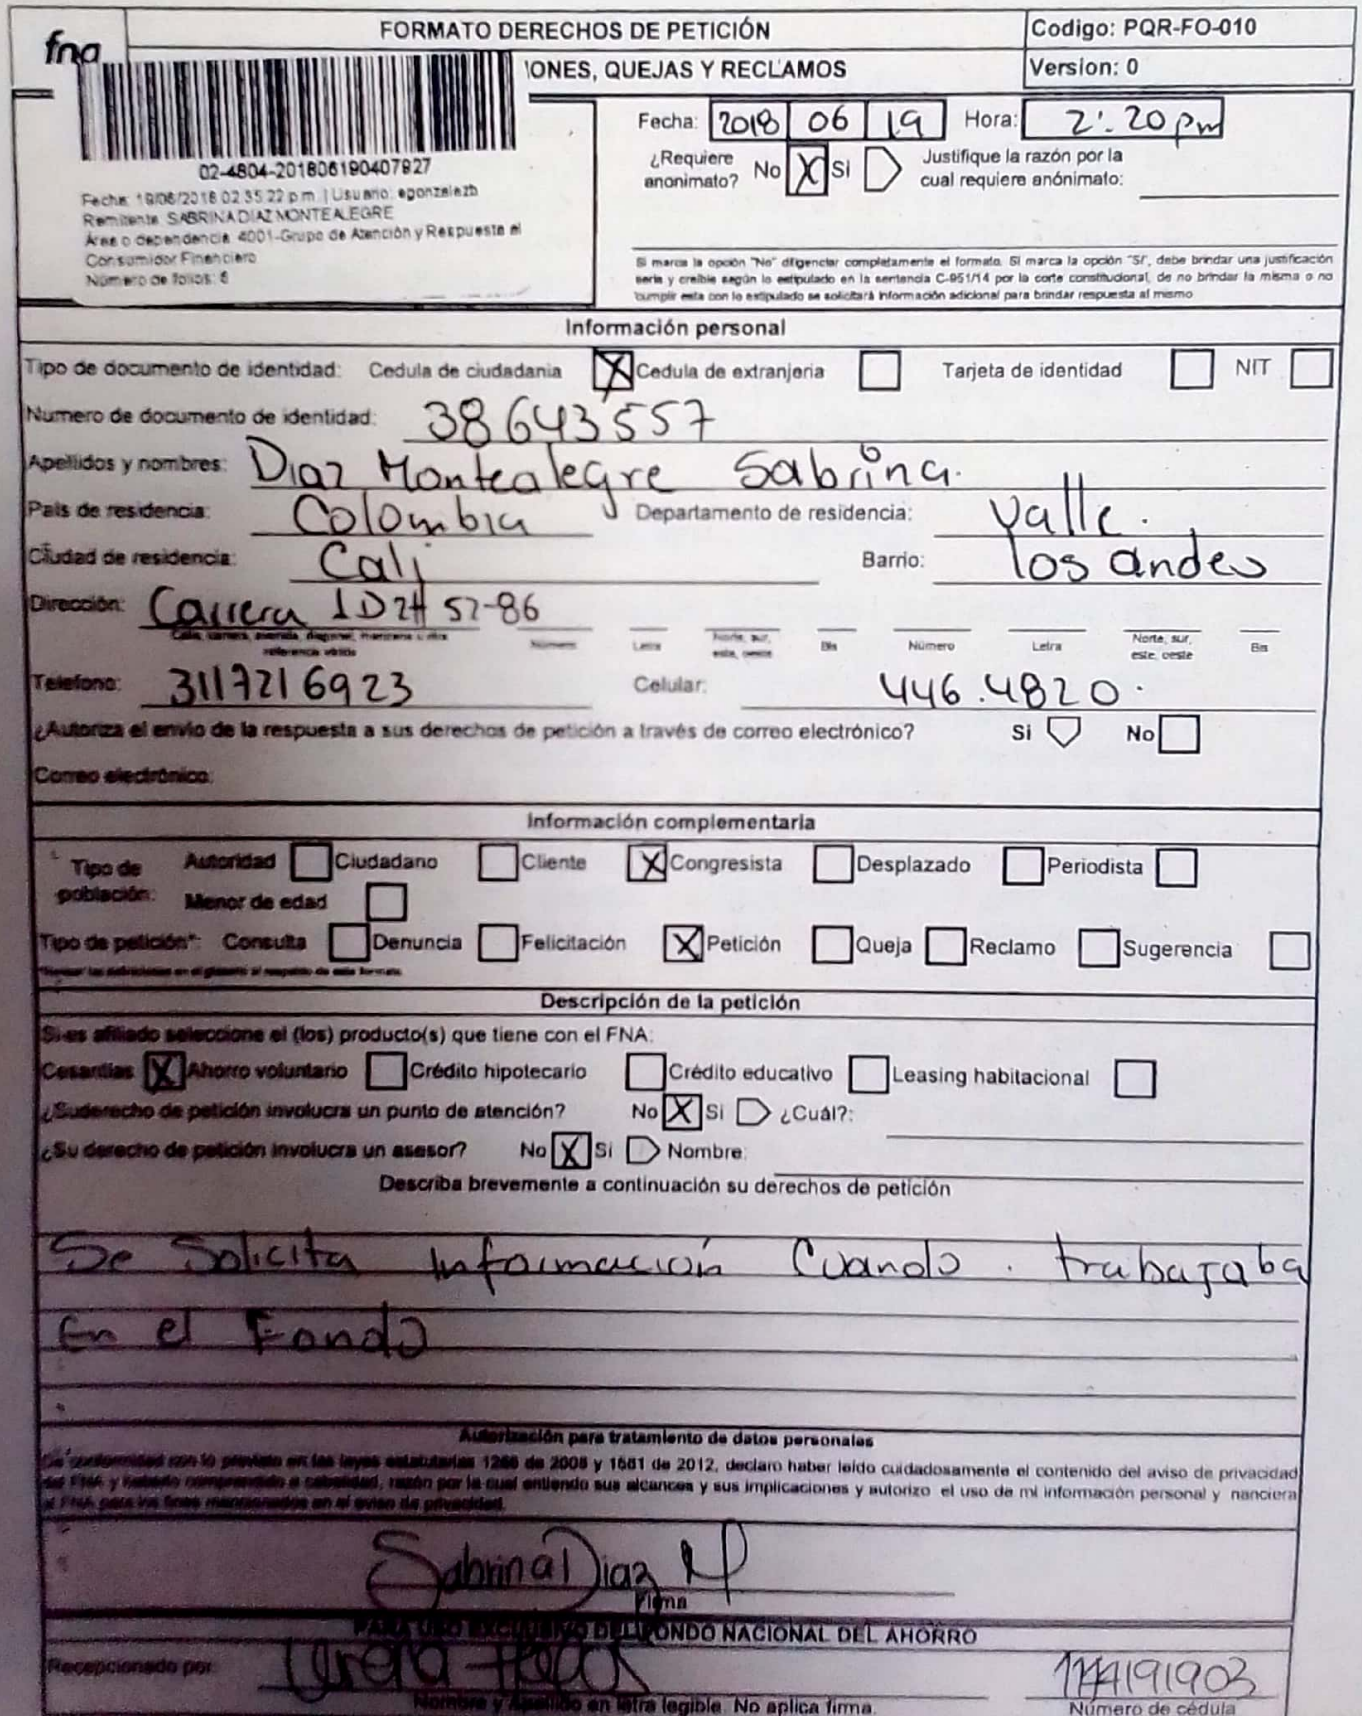 fna
FORMATO DERECHOS DE PETICIÓN
Codigo: PQR-FO-010
IONES, QUEJAS Y RECLAMOS
Version: 0
02-4804-201806190407927
Fecha: 19/06/2018 02:35:22 p.m. | Usuario: egonzalezb
Remitente: SABRINA DIAZ MONTEALEGRE
Área o dependencia: 4001-Grupo de Atención y Respuesta al
Consumidor Financiero
Número de folios: 6
Fecha: 2018 06 19 Hora: 2:20 pm
¿Requiere anonimato? No X Si Justifique la razón por la
cual requiere anónimato:
Si marca la opción "No" diligenciar completamente el formato. Si marca la opción "Si", debe brindar una justificación
seria y creíble según lo estipulado en la sentencia C-951/14 por la corte constitucional, de no brindar la misma o no
cumplir esta con lo estipulado se solicitará información adicional para brindar respuesta al mismo
Información personal
Tipo de documento de identidad: Cedula de ciudadania X Cedula de extranjeria Tarjeta de identidad NIT
Numero de documento de identidad: 38643557
Apellidos y nombres: Diaz Montealegre Sabrina.
País de residencia: Colombia Departamento de residencia: Valle.
Ciudad de residencia: Cali Barrio: los andes
Dirección: Carrera 1D2H 52-86
Calle, carrera, avenida, diagonal, manzana u otra Número Letra Norte, sur, Bis Número Letra Norte, sur, Bis
referencia válida este, oeste este, oeste
Telefono: 3117216923 Celular: 446.4820.
¿Autoriza el envío de la respuesta a sus derechos de petición a través de correo electrónico? Si No
Correo electrónico:
Información complementaria
Tipo de población: Autoridad Ciudadano Cliente X Congresista Desplazado Periodista
Menor de edad
Tipo de petición*: Consulta Denuncia Felicitación X Petición Queja Reclamo Sugerencia
*Revisar las definiciones en el glosario al respaldo de este formato.
Descripción de la petición
Si es afiliado seleccione el (los) producto(s) que tiene con el FNA:
Cesantías X Ahorro voluntario Crédito hipotecario Crédito educativo Leasing habitacional
¿Suderecho de petición involucra un punto de atención? No X Si ¿Cuál?:
¿Su derecho de petición involucra un asesor? No X Si Nombre:
Describa brevemente a continuación su derechos de petición
Se Solicita Información Cuando. trabajaba
En el Fondo
Autorización para tratamiento de datos personales
De conformidad con lo previsto en las leyes estatutarias 1266 de 2008 y 1581 de 2012, declaro haber leído cuidadosamente el contenido del aviso de privacidad
del FNA y haberlo comprendido a cabalidad, razón por la cual entiendo sus alcances y sus implicaciones y autorizo el uso de mi información personal y nanciera
al FNA para los fines mencionados en el aviso de privacidad.
Sabrina Diaz M
Firma
PARA USO EXCLUSIVO DEL FONDO NACIONAL DEL AHORRO
Recepcionado por:
Nombre y Apellido en letra legible. No aplica firma.
Número de cédula